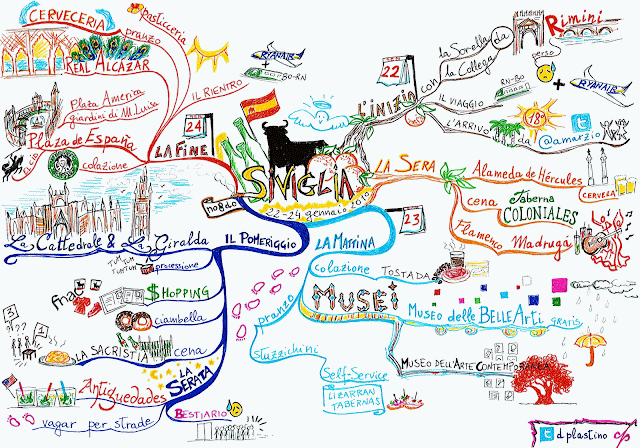 CERVECERIA
pranzo
pasticceria
REAL ALCAZAR
Plaza America
giardini di M. Luisa
Plaza de España
El Cid
colazione
24
LA FINE
IL RIENTRO
RYANAIR
BO-RN
SIVIGLIA
22-24 gennaio 2010
no8do
22
L'INIZIO
con
la Sorella
la Collega
da
Rimini
perso
IL VIAGGIO
RN-BO
+
RYANAIR
L'ARRIVO
18°
da
@amarzio
LA SERA
Alameda de Hércules
CERVEZA
cena
Taberna
COLONIALES
Flamenco
Madrugá
23
LA MATTINA
colazione
TOSTADA
MUSEI
Museo delle BELLE Arti
GRATIS
Museo dell'Arte Contemporanea
pranzo
stuzzichini
Self-Service
LIZARRAN
TABERNAS
IL POMERIGGIO
La Cattedrale & La Giralda
TUM TUM
TUM TUM
processione
fnac
$HOPPING
ciambella
LA SACRISTIA
cena
LA
SERATA
Antiguedades
BESTIARIO
vagar per strade
d plastino